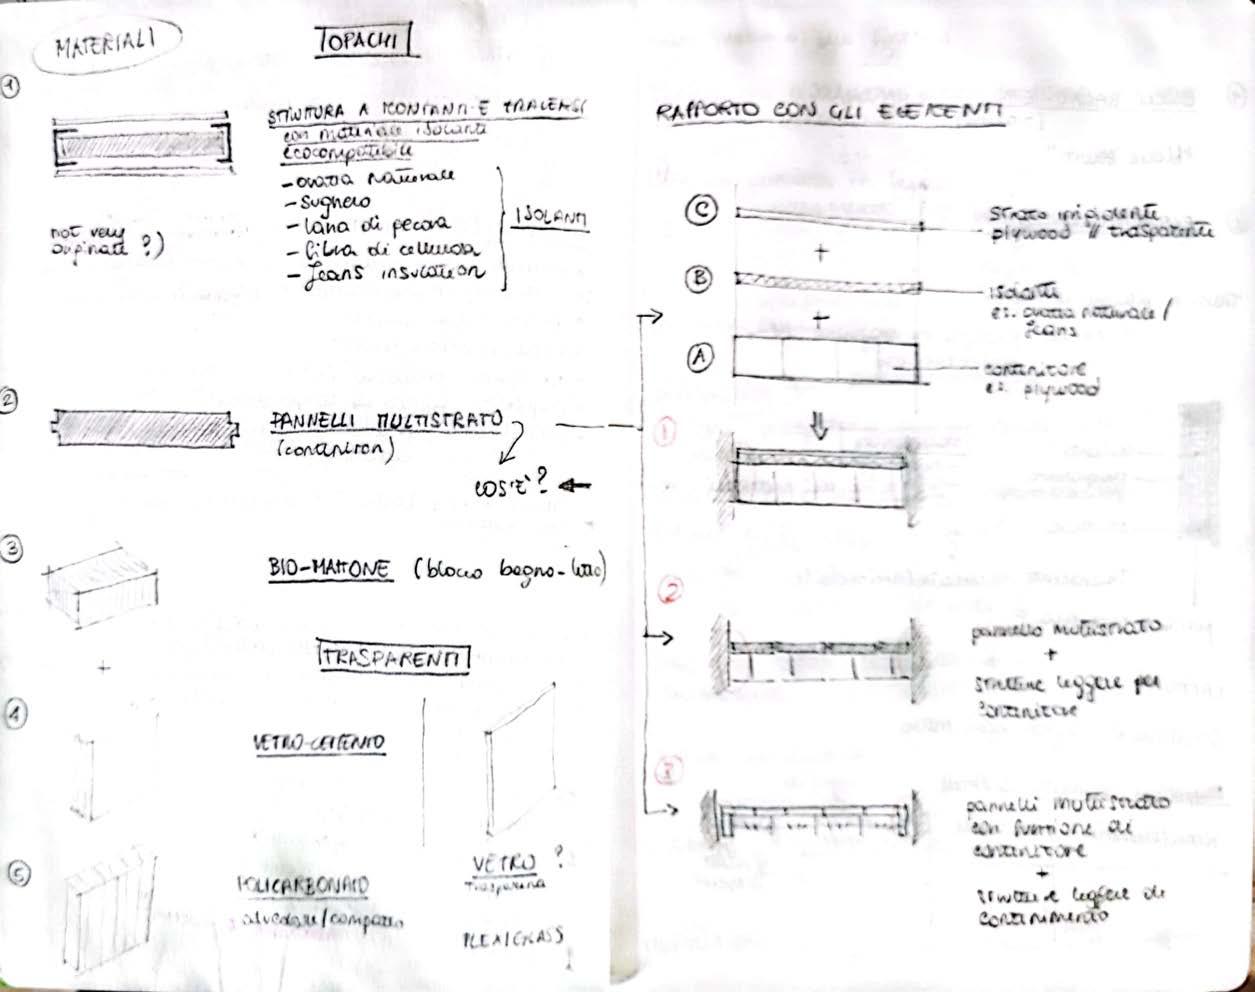 MATERIALI
OPACHI
1
STRUTTURA A MONTANTI E TRAVERSI
con materiale isolante
ecocompatibile
- ovatta naturale
- sughero
- lana di pecora
- fibra di cellulosa
- Jeans insulation
ISOLANTI
not very
?)
2
PANNELLI MULTISTRATO
COS'È?
3
BIO-MATTONE (blocco bagno-letto)
+
TRASPARENTI
4
VETRO-CEMENTO
5
POLICARBONATO
alveolare/compatto
VETRO ?
Trasparente
PLEXIGLASS
RAPPORTO CON GLI ELEMENTI
C
strato irrigidente
plywood // trasparente
+
B
isolante
es. ovatta naturale /
Jeans
+
A
contenitore
es. plywood
1
2
pannello multistrato
+
strutture leggere per
contenitore
3
pannelli multistrato
con funzione di
contenitore
+
strutture leggere di
contenimento